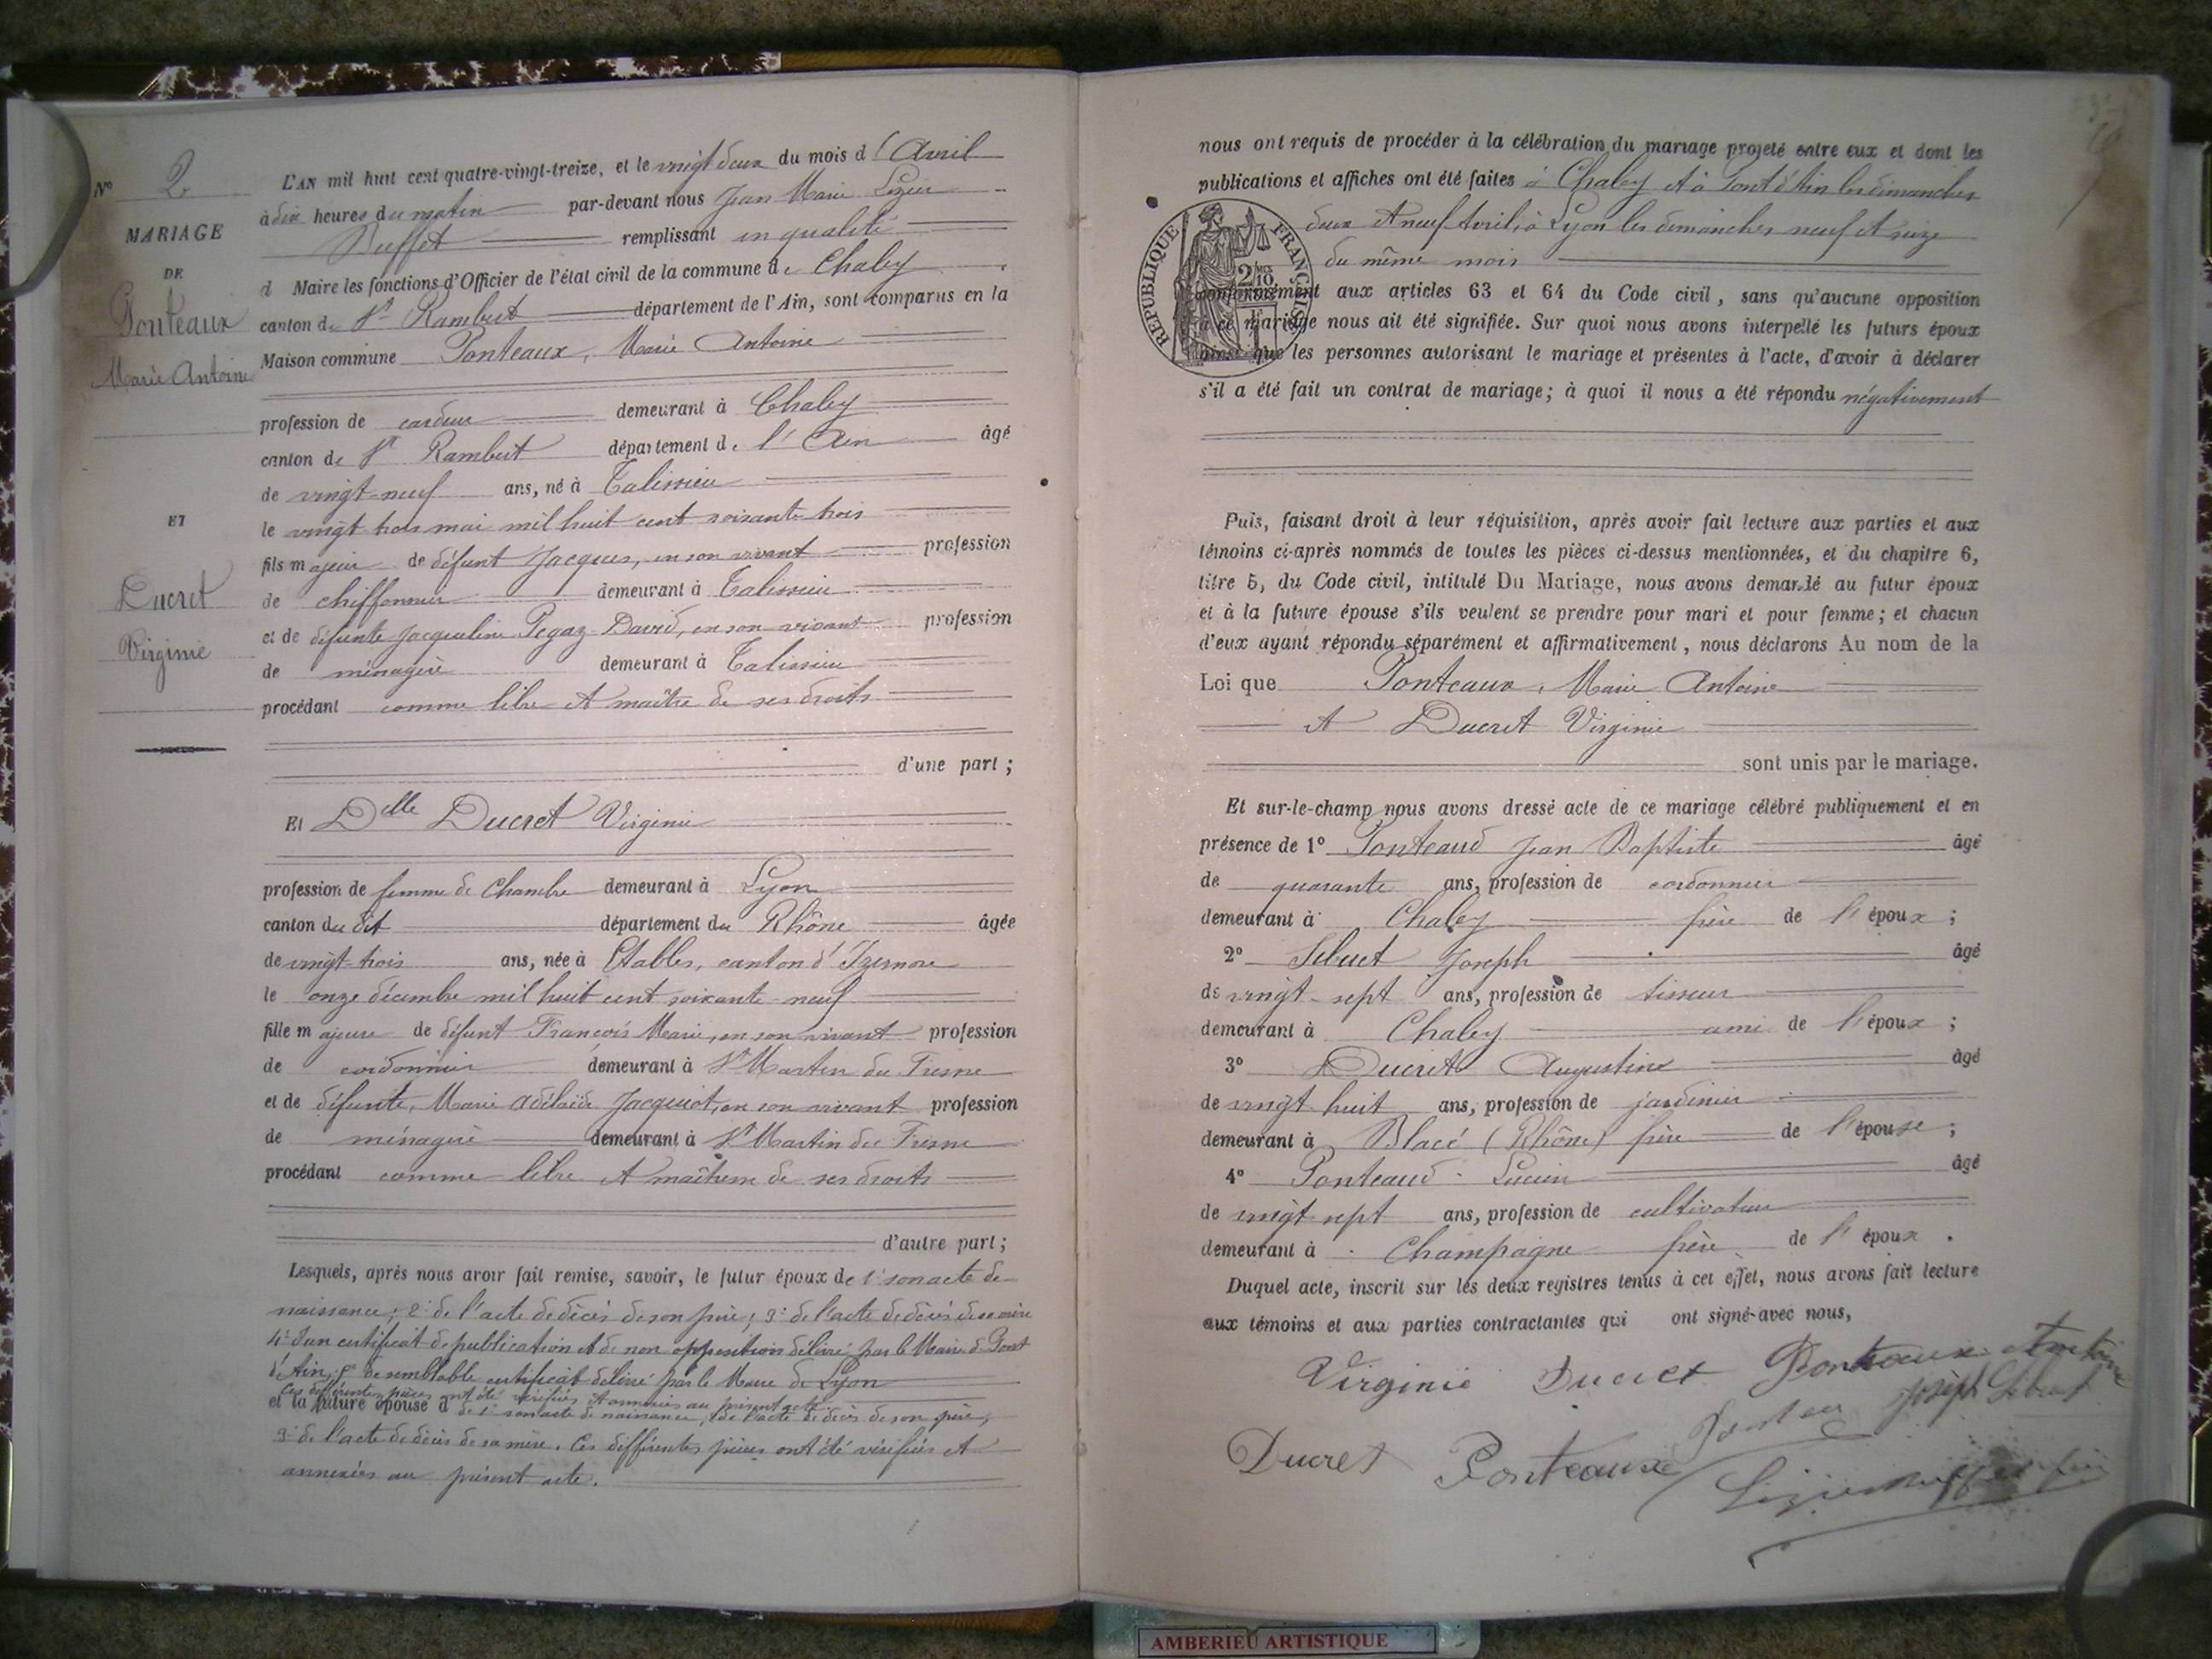 N° 2
MARIAGE
DE
Ponteaux
Marie Antoine
ET
Ducret
Virginie
L'AN mil huit cent quatre-vingt-treize, et le vingt deux du mois d'Avril
à dix heures du matin par-devant nous Jean Marie Lozier
Buffet remplissant en qualité
d Maire les fonctions d'Officier de l'état civil de la commune de Chaley
canton de St Rambert département de l'Ain, sont comparus en la
Maison commune Ponteaux, Marie Antoine
profession de cardeur demeurant à Chaley
canton de St Rambert département de l'Ain âgé
de vingt-neuf ans, né à Talissieu
le vingt trois mai mil huit cent soixante-trois
fils majeur de défunt Jacques, en son vivant profession
de chiffonnier demeurant à Talissieu
et de défunte Jacqueline Pegaz-David, en son vivant profession
de ménagère demeurant à Talissieu
procédant comme libre et maître de ses droits
d'une part ;
Et Delle Ducret Virginie
profession de femme de Chambre demeurant à Lyon
canton du dit département du Rhône âgée
de vingt-trois ans, née à Etables, canton d'Izernore
le onze décembre mil huit cent soixante-neuf
fille majeure de défunt François Marie, en son vivant profession
de cordonnier demeurant à St Martin du Fresne
et de défunte, Marie Adélaïde Jacquiot, en son vivant profession
de ménagère demeurant à St Martin du Fresne
procédant comme libre et maîtresse de ses droits
d'autre part ;
Lesquels, après nous avoir fait remise, savoir, le futur époux de 1° son acte de
naissance ; 2° de l'acte de décès de son père ; 3° de l'acte de décès de sa mère
4° d'un certificat de publication et de non opposition délivré par le Maire de Pont
d'Ain ; 5° de semblable certificat délivré par le Maire de Lyon
Ces différentes pièces ont été vérifiées et annexées au présent acte
et la future épouse d de 1° son acte de naissance, de l'acte de décès de son père,
3° de l'acte de décès de sa mère. Ces différentes pièces ont été vérifiées et
annexées au présent acte.
nous ont requis de procéder à la célébration du mariage projeté entre eux et dont les
publications et affiches ont été faites à Chaley et à Pont d'Ain les dimanches
deux et neuf Avril, à Lyon les dimanches neuf et seize
du même mois
REPUBLIQUE FRANÇAISE
conformément aux articles 63 et 64 du Code civil, sans qu'aucune opposition
à ce mariage nous ait été signifiée. Sur quoi nous avons interpellé les futurs époux
ainsi que les personnes autorisant le mariage et présentes à l'acte, d'avoir à déclarer
s'il a été fait un contrat de mariage ; à quoi il nous a été répondu négativement
Puis, faisant droit à leur réquisition, après avoir fait lecture aux parties et aux
témoins ci-après nommés de toutes les pièces ci-dessus mentionnées, et du chapitre 6,
titre 5, du Code civil, intitulé Du Mariage, nous avons demandé au futur époux
et à la future épouse s'ils veulent se prendre pour mari et pour femme ; et chacun
d'eux ayant répondu séparément et affirmativement, nous déclarons Au nom de la
Loi que Ponteaux, Marie Antoine
et Ducret Virginie
sont unis par le mariage.
Et sur-le-champ nous avons dressé acte de ce mariage célébré publiquement et en
présence de 1° Ponteaud Jean Baptiste âgé
de quarante ans, profession de cordonnier
demeurant à Chaley frère de l'époux ;
2° Joseph âgé
de vingt-sept ans, profession de tisseur
demeurant à Chaley ami de l'époux ;
3° Ducret Augustine âgé
de vingt huit ans, profession de jardinier
demeurant à Blacé (Rhône) frère de l'épouse ;
4° Ponteaud Lucien âgé
de vingt sept ans, profession de cultivateur
demeurant à Champagne frère de l'époux.
Duquel acte, inscrit sur les deux registres tenus à cet effet, nous avons fait lecture
aux témoins et aux parties contractantes qui ont signé avec nous,
Virginie Ducret Ponteaux Antoine
Joseph
Ducret Ponteaux
AMBERIEU ARTISTIQUE